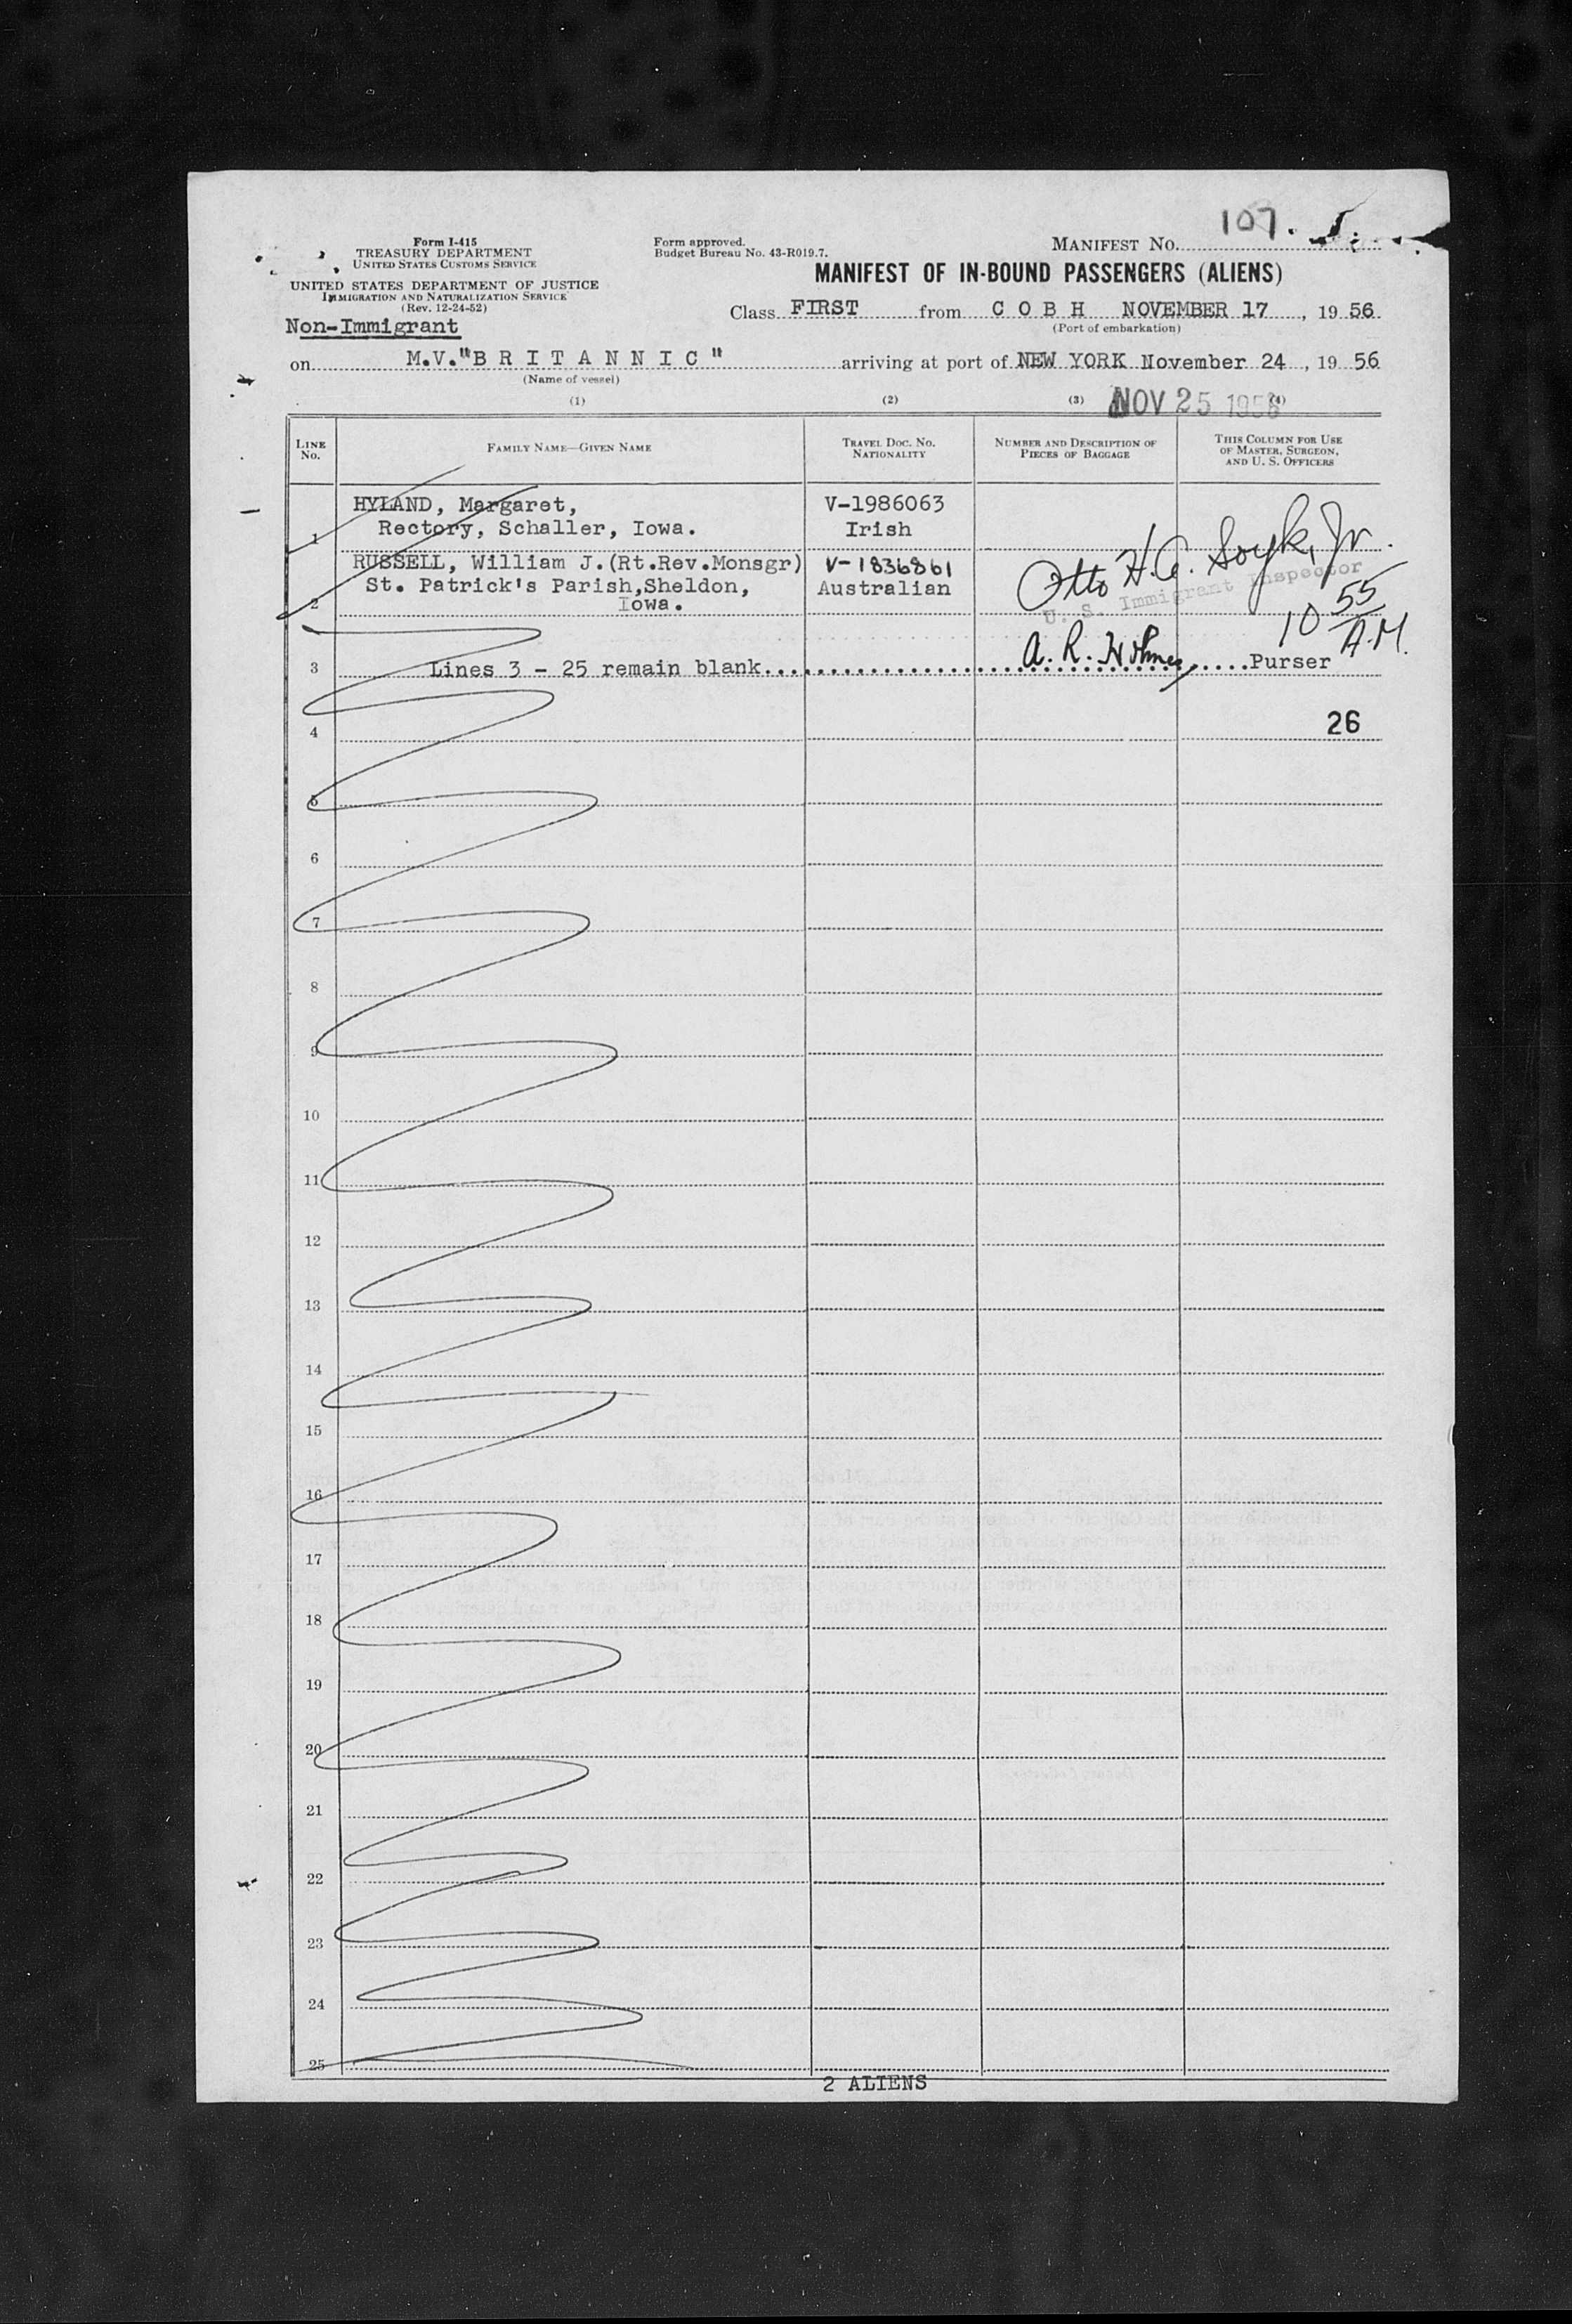 107.
Form I-415
TREASURY DEPARTMENT
UNITED STATES CUSTOMS SERVICE
UNITED STATES DEPARTMENT OF JUSTICE
IMMIGRATION AND NATURALIZATION SERVICE
(Rev. 12-24-52)
Non-Immigrant
Form approved.
Budget Bureau No. 43-R019.7.
MANIFEST NO.
MANIFEST OF IN-BOUND PASSENGERS (ALIENS)
Class FIRST from C O B H NOVEMBER 17, 19 56
(Port of embarkation)
on M.V."B R I T A N N I C" arriving at port of NEW YORK November 24, 19 56
(Name of vessel)
(1) (2) (3) (4)
NOV 25 1956
LINE No. FAMILY NAME—GIVEN NAME TRAVEL DOC. NO. NATIONALITY NUMBER AND DESCRIPTION OF PIECES OF BAGGAGE THIS COLUMN FOR USE OF MASTER, SURGEON, AND U. S. OFFICERS
HYLAND, Margaret, V-1986063
1 Rectory, Schaller, Iowa. Irish
RUSSELL, William J.(Rt.Rev.Monsgr) V-1836861
St. Patrick's Parish,Sheldon, Australian
2 Iowa.
Otto H.C. Soyk, Jr.
U. S. Immigrant Inspector
10 55 A.M.
3 Lines 3 - 25 remain blank. A. R. Holmes Purser
26
4
5
6
7
8
9
10
11
12
13
14
15
16
17
18
19
20
21
22
23
24
25
2 ALIENS